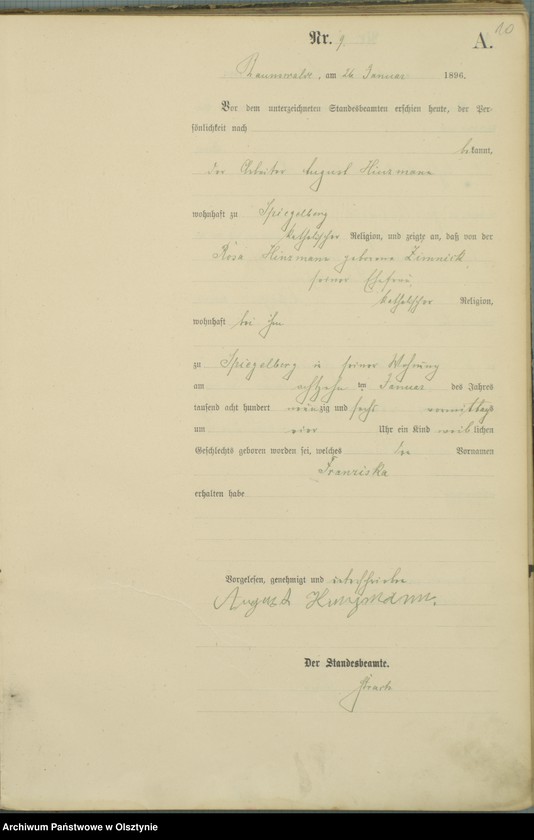 10
Nr. 9
A.
am 26 Januar 1896.
Vor dem unterzeichneten Standesbeamten erschien heute, der Per-
sönlichkeit nach
bekannt,
der Arbeiter August Hinzmann
wohnhaft zu Spiegelberg
katholischer Religion, und zeigte an, daß von der
Rosa Hinzmann geborene Zimnick,
seiner Ehefrau,
katholischer Religion,
wohnhaft bei ihm
zu Spiegelberg in seiner Wohnung
am achtzehn ten Januar des Jahres
tausend acht hundert neunzig und sechs vormittags
um vier Uhr ein Kind weiblichen
Geschlechts geboren worden sei, welches den Vornamen
Franziska
erhalten habe
Vorgelesen, genehmigt und unterschrieben
August Hinzmann.
Der Standesbeamte.
Archiwum Państwowe w Olsztynie